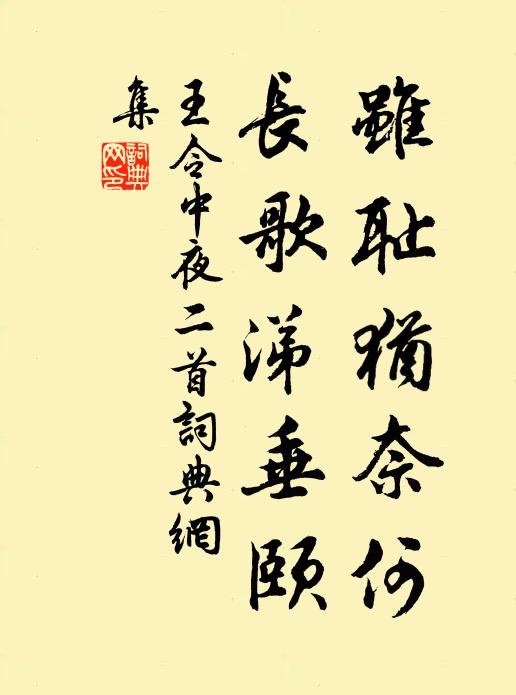 雖耻猶奈何
長歌涕垂頤
王令中夜二首詞典網
集
詞典網印